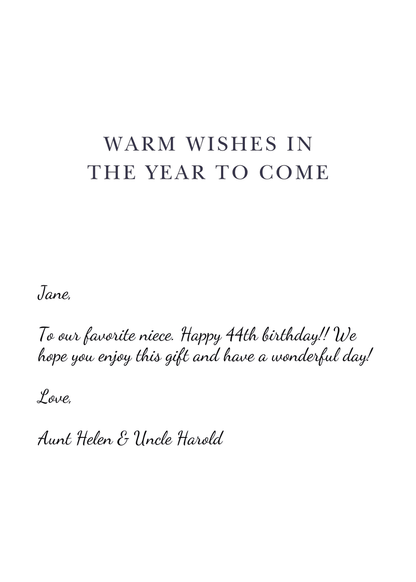 WARM WISHES IN
THE YEAR TO COME
Jane,
To our favorite niece. Happy 44th birthday!! We
hope you enjoy this gift and have a wonderful day!
Love,
Aunt Helen & Uncle Harold